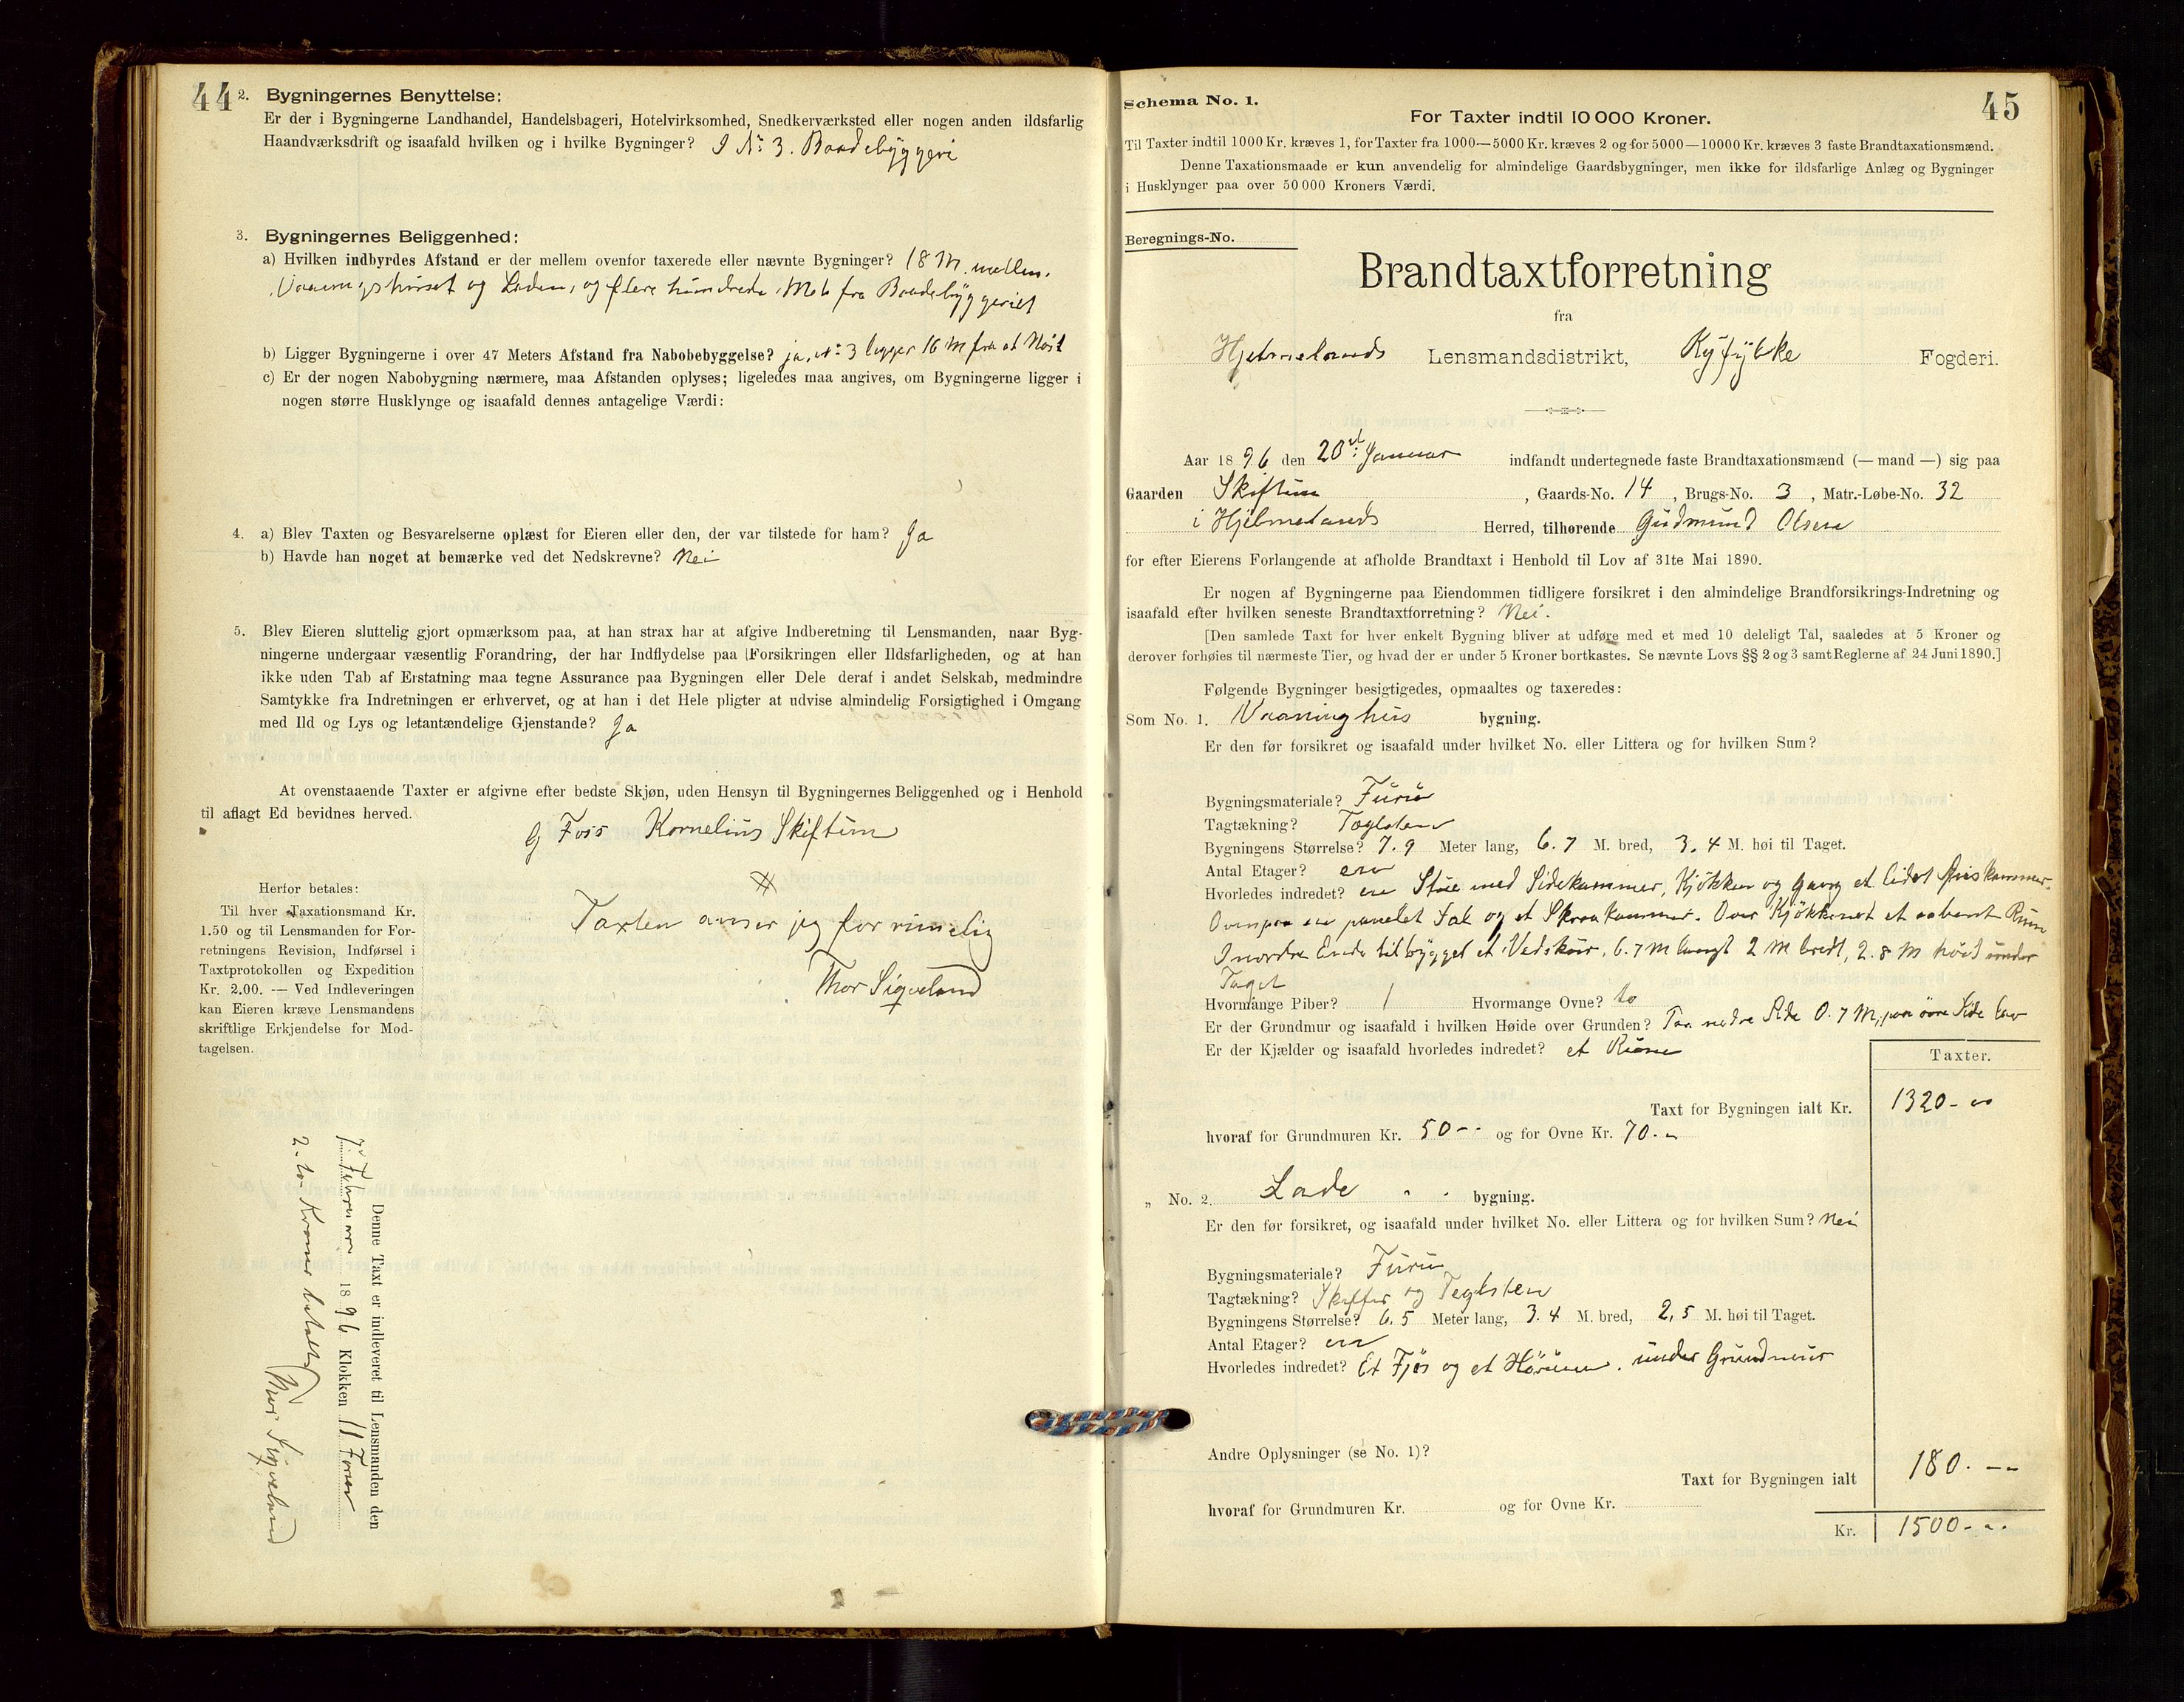 44
2. Bygningernes Benyttelse:
Er der i Bygningerne Landhandel, Handelsbageri, Hotelvirksomhed, Snedkerværksted eller nogen anden ildsfarlig
Haandværksdrift og isaafald hvilken og i hvilke Bygninger? I No 3. Baadebyggeri
3. Bygningernes Beliggenhed:
a) Hvilken indbyrdes Afstand er der mellem ovenfor taxerede eller nævnte Bygninger? 18 M. mellem
Vaaningshuset og Laden, og flere hundrede Met fra Baadebyggeriet
b) Ligger Bygningerne i over 47 Meters Afstand fra Nabobebyggelse? ja, No 3 ligger 16 M fra et Nøst
c) Er der nogen Nabobygning nærmere, maa Afstanden oplyses; ligeledes maa angives, om Bygningerne ligger i
nogen større Husklynge og isaafald dennes antagelige Værdi:
4. a) Blev Taxten og Besvarelserne oplæst for Eieren eller den, der var tilstede for ham? Ja
b) Havde han noget at bemærke ved det Nedskrevne? Nei
5. Blev Eieren sluttelig gjort opmærksom paa, at han strax har at afgive Indberetning til Lensmanden, naar Byg-
ningerne undergaar væsentlig Forandring, der har Indflydelse paa Forsikringen eller Ildsfarligheden, og at han
ikke uden Tab af Erstatning maa tegne Assurance paa Bygningen eller Dele deraf i andet Selskab, medmindre
Samtykke fra Indretningen er erhvervet, og at han i det Hele pligter at udvise almindelig Forsigtighed i Omgang
med Ild og Lys og letantændelige Gjenstande? Ja
At ovenstaaende Taxter er afgivne efter bedste Skjøn, uden Hensyn til Bygningernes Beliggenhed og i Henhold
til aflagt Ed bevidnes herved.
G Foss Kornelius Skiftun
Herfor betales:
Til hver Taxationsmand Kr.
1.50 og til Lensmanden for For-
retningens Revision, Indførsel i
Taxtprotokollen og Expedition
Kr. 2.00. — Ved Indleveringen
kan Eieren kræve Lensmandens
skriftlige Erkjendelse for Mod-
tagelsen.
Taxten anser jeg for rimelig
Thor Sigveland
Denne Taxt er indleveret til Lensmanden den
7. Februar 1896 Klokken 11 Form
2 - to Kroner betalt
Thor Sigveland
Schema No. 1.
45
For Taxter indtil 10 000 Kroner.
Til Taxter indtil 1000 Kr. kræves 1, for Taxter fra 1000—5000 Kr. kræves 2 og for 5000—10000 Kr. kræves 3 faste Brandtaxationsmænd.
Denne Taxationsmaade er kun anvendelig for almindelige Gaardsbygninger, men ikke for ildsfarlige Anlæg og Bygninger
i Husklynger paa over 50 000 Kroners Værdi.
Beregnings-No.
Brandtaxtforretning
fra
Hjelmelands Lensmandsdistrikt, Ryfylke Fogderi.
Aar 1896 den 20de Januar indfandt undertegnede faste Brandtaxationsmænd (— mand —) sig paa
Gaarden Skiftun, Gaards-No. 14, Brugs-No. 3, Matr.-Løbe-No. 32
i Hjelmelands Herred, tilhørende Gudmund Olsen
for efter Eierens Forlangende at afholde Brandtaxt i Henhold til Lov af 31te Mai 1890.
Er nogen af Bygningerne paa Eiendommen tidligere forsikret i den almindelige Brandforsikrings-Indretning og
isaafald efter hvilken seneste Brandtaxtforretning? Nei.
[Den samlede Taxt for hver enkelt Bygning bliver at udføre med et med 10 deleligt Tal, saaledes at 5 Kroner og
derover forhøies til nærmeste Tier, og hvad der er under 5 Kroner bortkastes. Se nævnte Lovs §§ 2 og 3 samt Reglerne af 24 Juni 1890.]
Følgende Bygninger besigtigedes, opmaaltes og taxeredes:
Som No. 1. Vaaninghus bygning.
Er den før forsikret og isaafald under hvilket No. eller Littera og for hvilken Sum?
Bygningsmateriale? Furu
Tagtækning? Taglsten
Bygningens Størrelse? 7.9 Meter lang, 6.7 M. bred, 3.4 M. høi til Taget.
Antal Etager? en
Hvorledes indredet? en Stue med Sidekammer, Kjøkken og Gang et lidet Spiskammer.
Ovenpaa en panelet Sal og et Skraakammer. Over Kjøkkenet et aabent Rum
I nordre Ende tilbygget et Vedskur, 6.7 M langt 2 M bredt, 2.8 M høit under
Taget
Hvormange Piber? 1 Hvormange Ovne? to
Er der Grundmur og isaafald i hvilken Høide over Grunden? Paa nedre Side 0.7 M, paa øvre Side lav
Er der Kjælder og isaafald hvorledes indredet? et Rum
Taxter.
Taxt for Bygningen ialt Kr. 1320-00
hvoraf for Grundmuren Kr. 50-- og for Ovne Kr. 70.-
" No. 2. Lade bygning.
Er den før forsikret, og isaafald under hvilket No. eller Littera og for hvilken Sum? Nei
Bygningsmateriale? Furu
Tagtækning? Skiffer og Teglsten
Bygningens Størrelse? 6.5 Meter lang, 3.4 M. bred, 2,5 M. høi til Taget.
Antal Etager? en
Hvorledes indredet? Et Fjøs og et Hørum. under Grundmur
Andre Oplysninger (se No. 1)?
Taxt for Bygningen ialt 180.--
hvoraf for Grundmuren Kr. og for Ovne Kr.
Kr. 1500-..